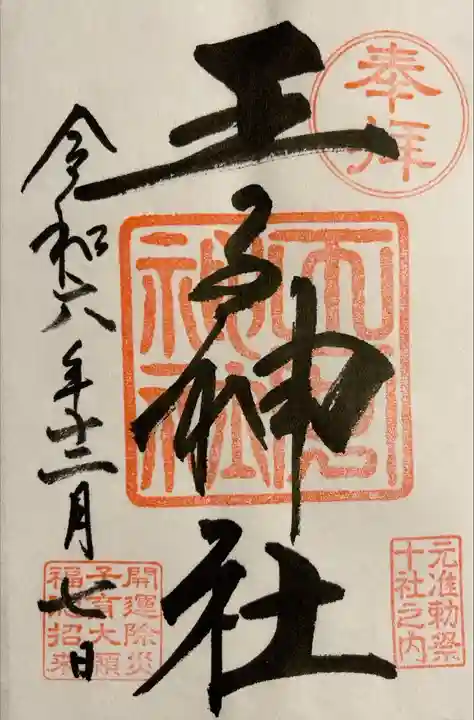 奉拝
王子神社
元准勅祭
十社之内
令和六年十二月七日
開運除災
子育大願
福招来